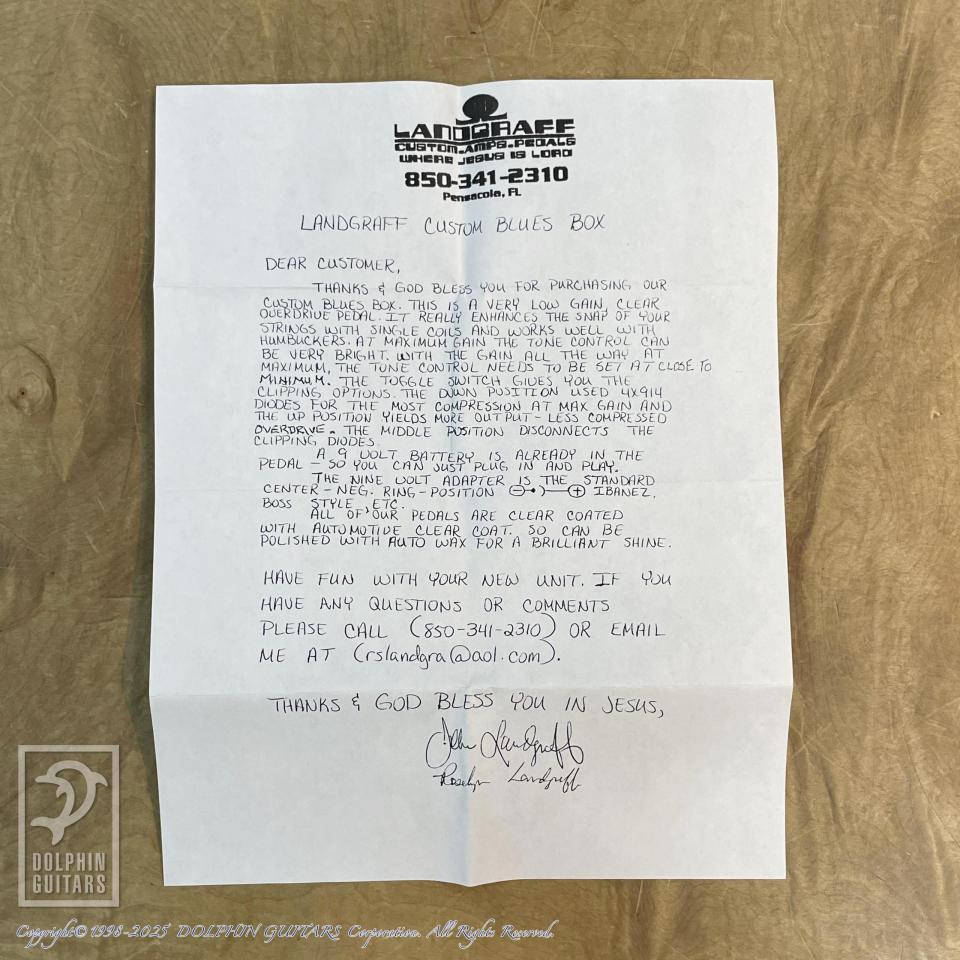 LANDGRAFF
CUSTOM.AMPS.PEDALS
WHERE JESUS IS LORD
850-341-2310
Pensacola, FL
LANDGRAFF CUSTOM BLUES BOX
DEAR CUSTOMER,
THANKS & GOD BLESS YOU FOR PURCHASING OUR
CUSTOM BLUES BOX. THIS IS A VERY LOW GAIN, CLEAR
OVERDRIVE PEDAL. IT REALLY ENHANCES THE SNAP OF YOUR
STRINGS WITH SINGLE COILS AND WORKS WELL WITH
HUMBUCKERS. AT MAXIMUM GAIN THE TONE CONTROL CAN
BE VERY BRIGHT. WITH THE GAIN ALL THE WAY AT
MAXIMUM, THE TONE CONTROL NEEDS TO BE SET AT CLOSE TO
MINIMUM. THE TOGGLE SWITCH GIVES YOU THE
CLIPPING OPTIONS. THE DOWN POSITION USED 4X914
DIODES FOR THE MOST COMPRESSION AT MAX GAIN AND
THE UP POSITION YIELDS MORE OUTPUT - LESS COMPRESSED
OVERDRIVE. THE MIDDLE POSITION DISCONNECTS THE
CLIPPING DIODES.
A 9 VOLT BATTERY IS ALREADY IN THE
PEDAL - SO YOU CAN JUST PLUG IN AND PLAY.
THE NINE VOLT ADAPTER IS THE STANDARD
CENTER-NEG. RING-POSITION ⊖-•)-⊕ IBANEZ,
BOSS STYLE, ETC.
ALL OF OUR PEDALS ARE CLEAR COATED
WITH AUTOMOTIVE CLEAR COAT. SO CAN BE
POLISHED WITH AUTO WAX FOR A BRILLIANT SHINE.
HAVE FUN WITH YOUR NEW UNIT. IF YOU
HAVE ANY QUESTIONS OR COMMENTS
PLEASE CALL (850-341-2310) OR EMAIL
ME AT (rslandgra@aol.com).
THANKS & GOD BLESS YOU IN JESUS,
John Landgraff
Roselyn Landgraff
DOLPHIN
GUITARS
Copyright© 1998-2025 DOLPHIN GUITARS Corporation. All Rights Reserved.